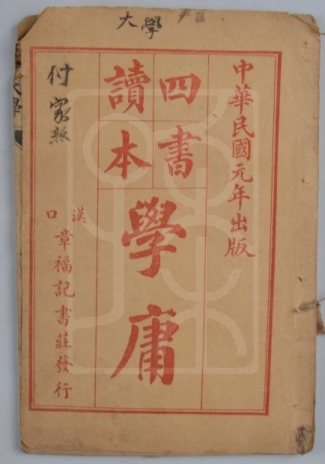 大學
中華民國元年出版
四書
讀本
學庸
漢口章福記書莊發行
付